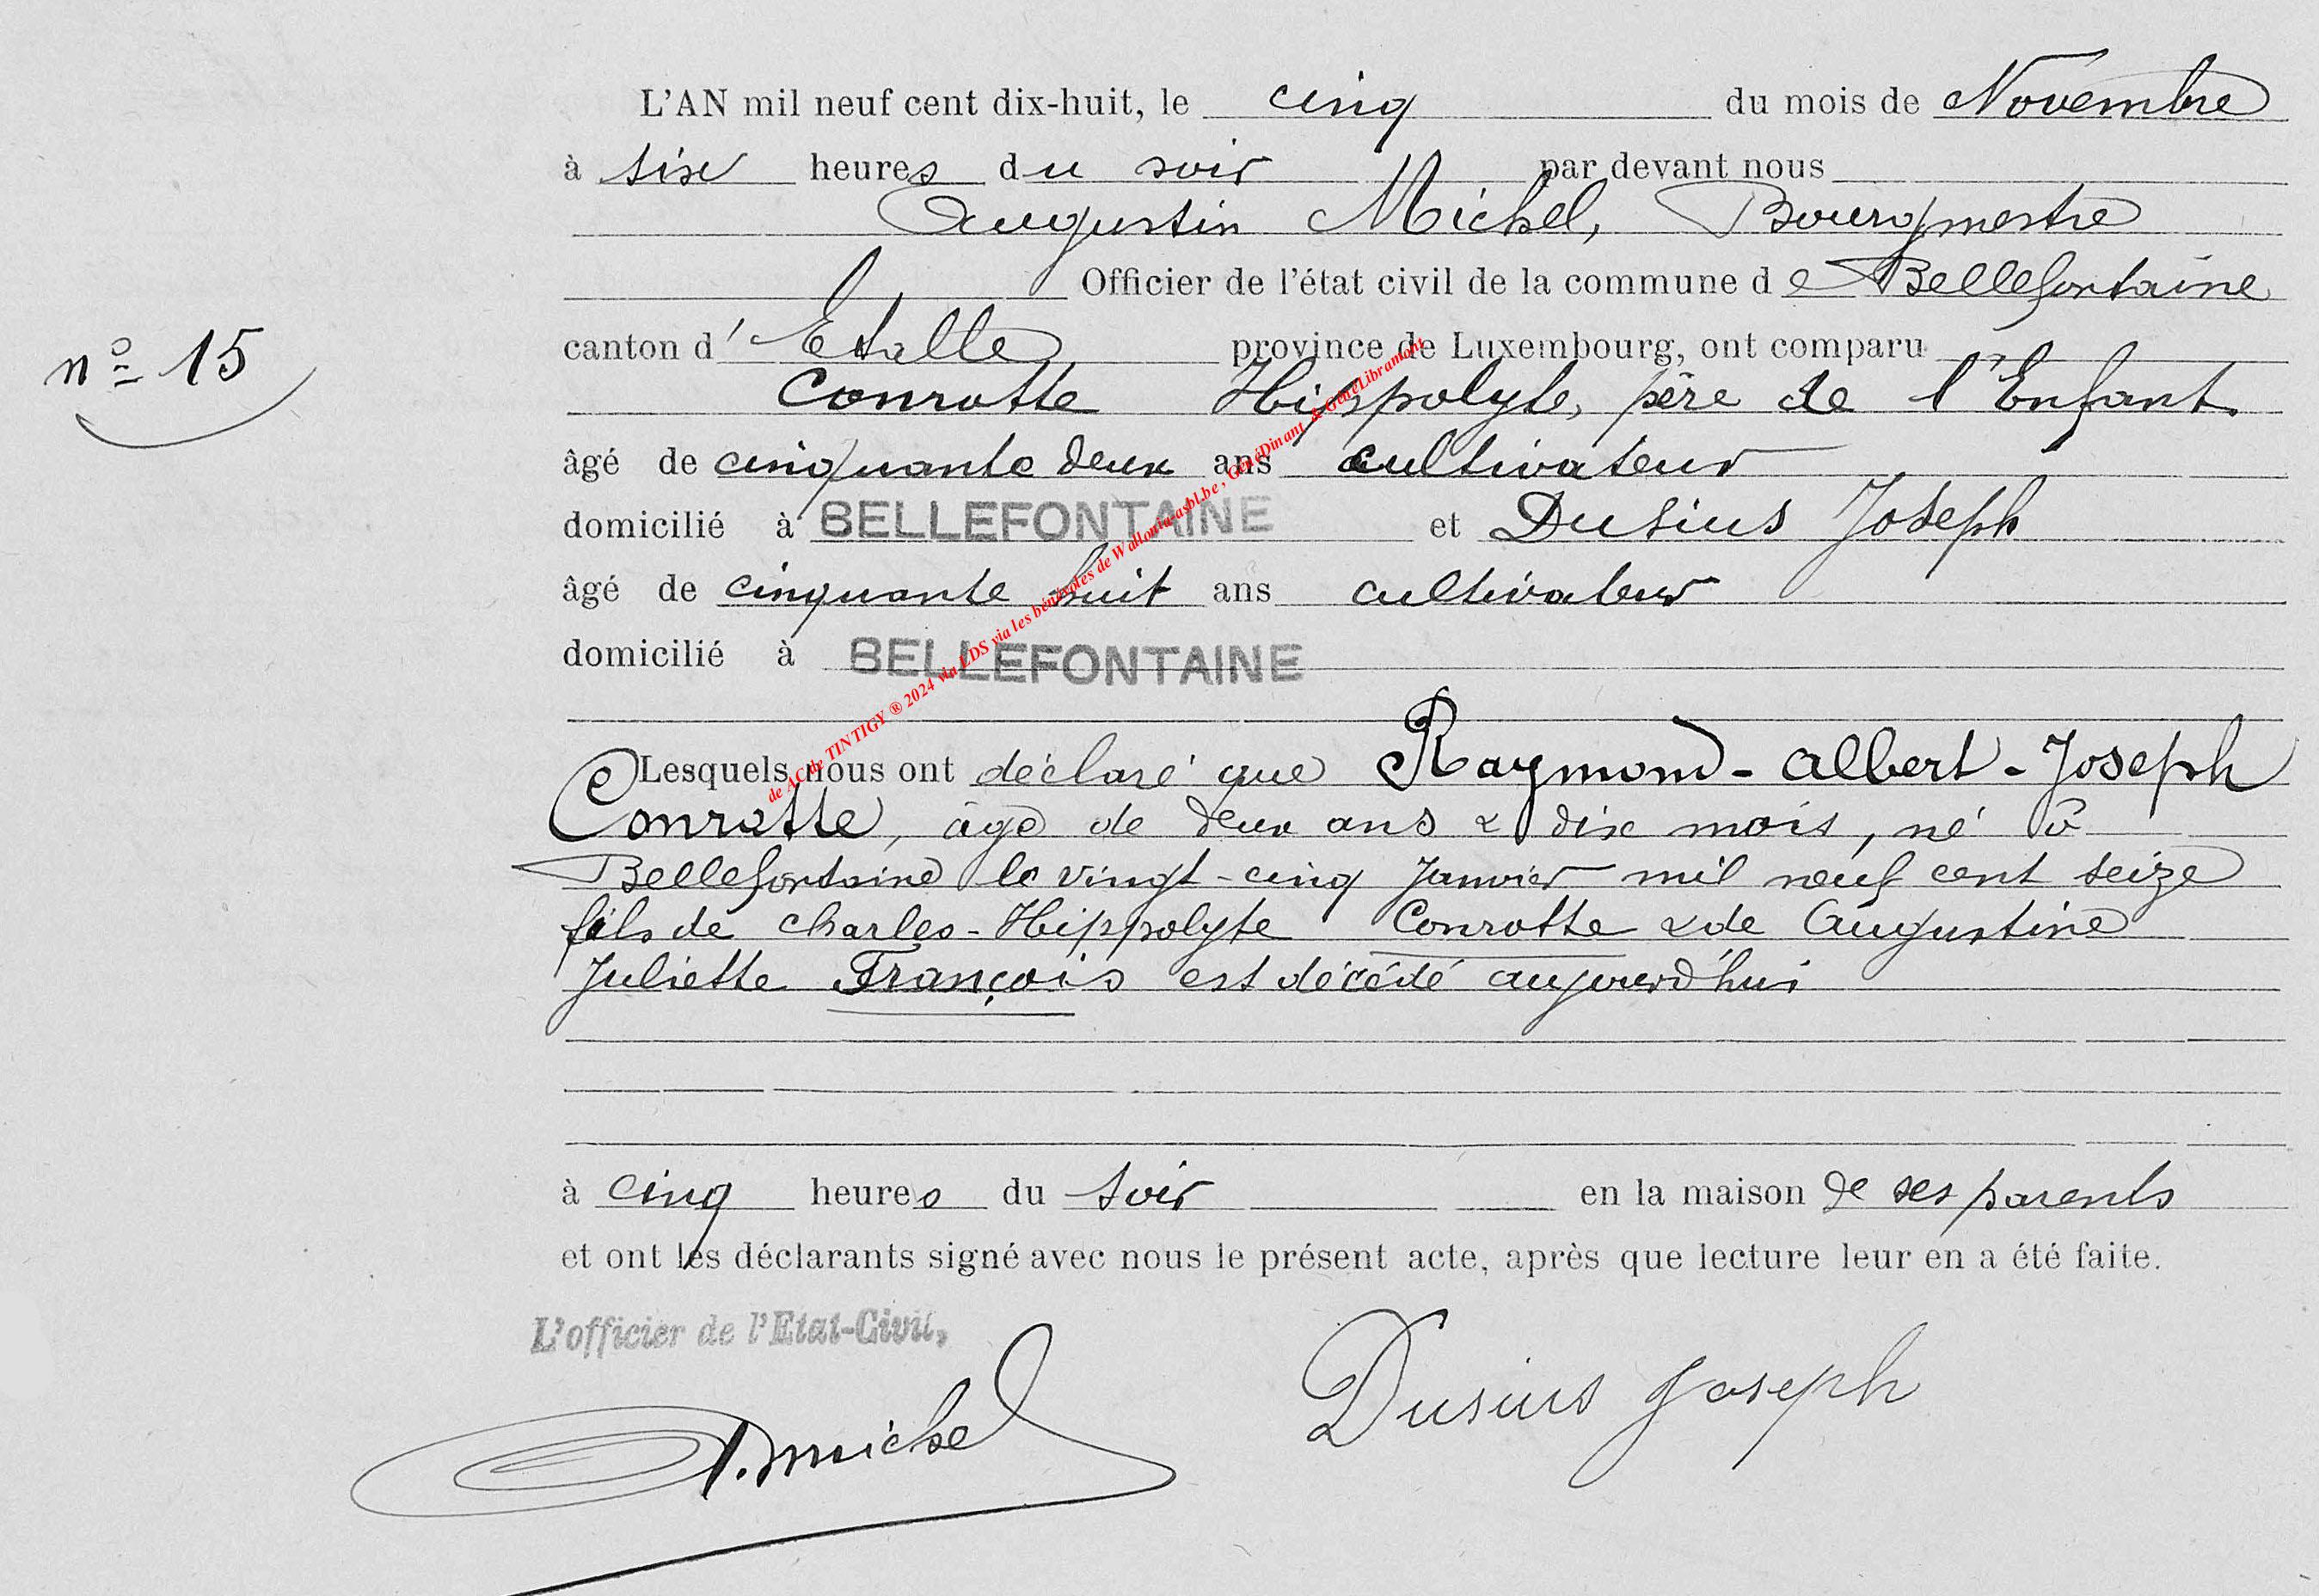 L'AN mil neuf cent dix-huit, le cinq du mois de Novembre
à six heures du soir par devant nous
Augustin Michel, Bourgmestre
Officier de l'état civil de la commune de Bellefontaine
n° 15
canton d' Etalle province de Luxembourg, ont comparu
Conrotte Hippolyte, père de l'Enfant.
âgé de cinquante deux ans cultivateur
domicilié à BELLEFONTAINE et Dusius Joseph
âgé de cinquante huit ans cultivateur
domicilié à BELLEFONTAINE
Lesquels nous ont déclaré que Raymond-Albert-Joseph
Conrotte, âgé de deux ans & dix mois, né à
Bellefontaine le vingt-cinq Janvier mil neuf cent seize
fils de Charles-Hippolyte Conrotte & de Augustine
Juliette François est décédé aujourd'hui
à cinq heures du soir en la maison de ses parents
et ont les déclarants signé avec nous le présent acte, après que lecture leur en a été faite.
L'officier de l'Etat-Civil,
A. Michel
Dusius Joseph
de AC de TINTIGY ® 2024 via LDS via les bénévoles de Wallonia-asbl.be, GénéDinant & GénéLibramont